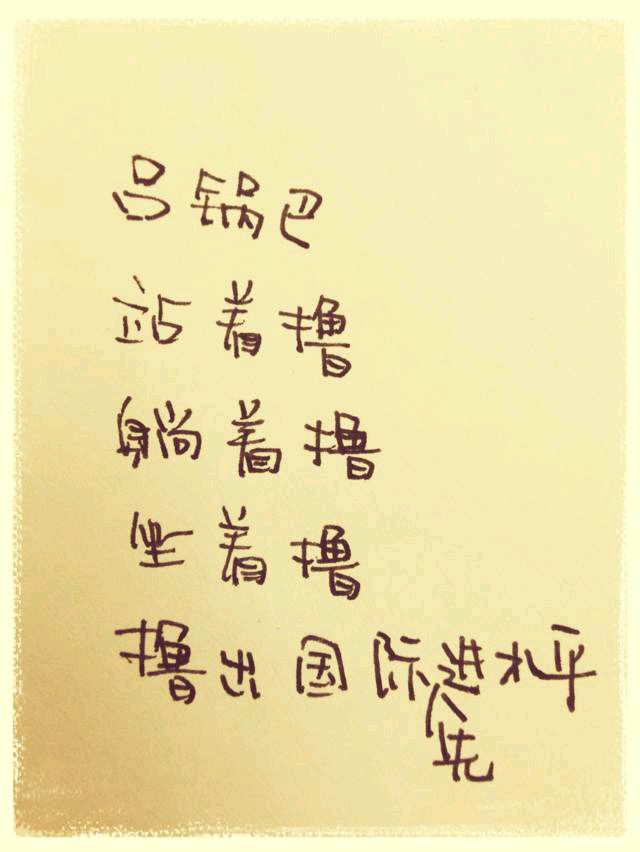 吕锅巴
站着撸
躺着撸
坐着撸
撸出国际先进水平